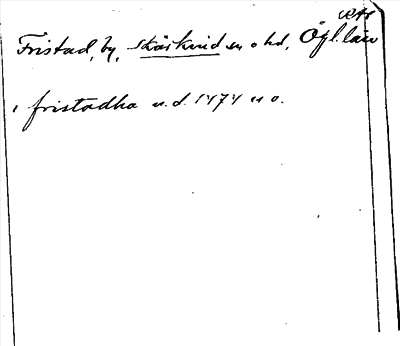 RAP
Fristad, by, Skärkind sn o hd, Ögl. län
i fristadha u.d. 1474 u o.